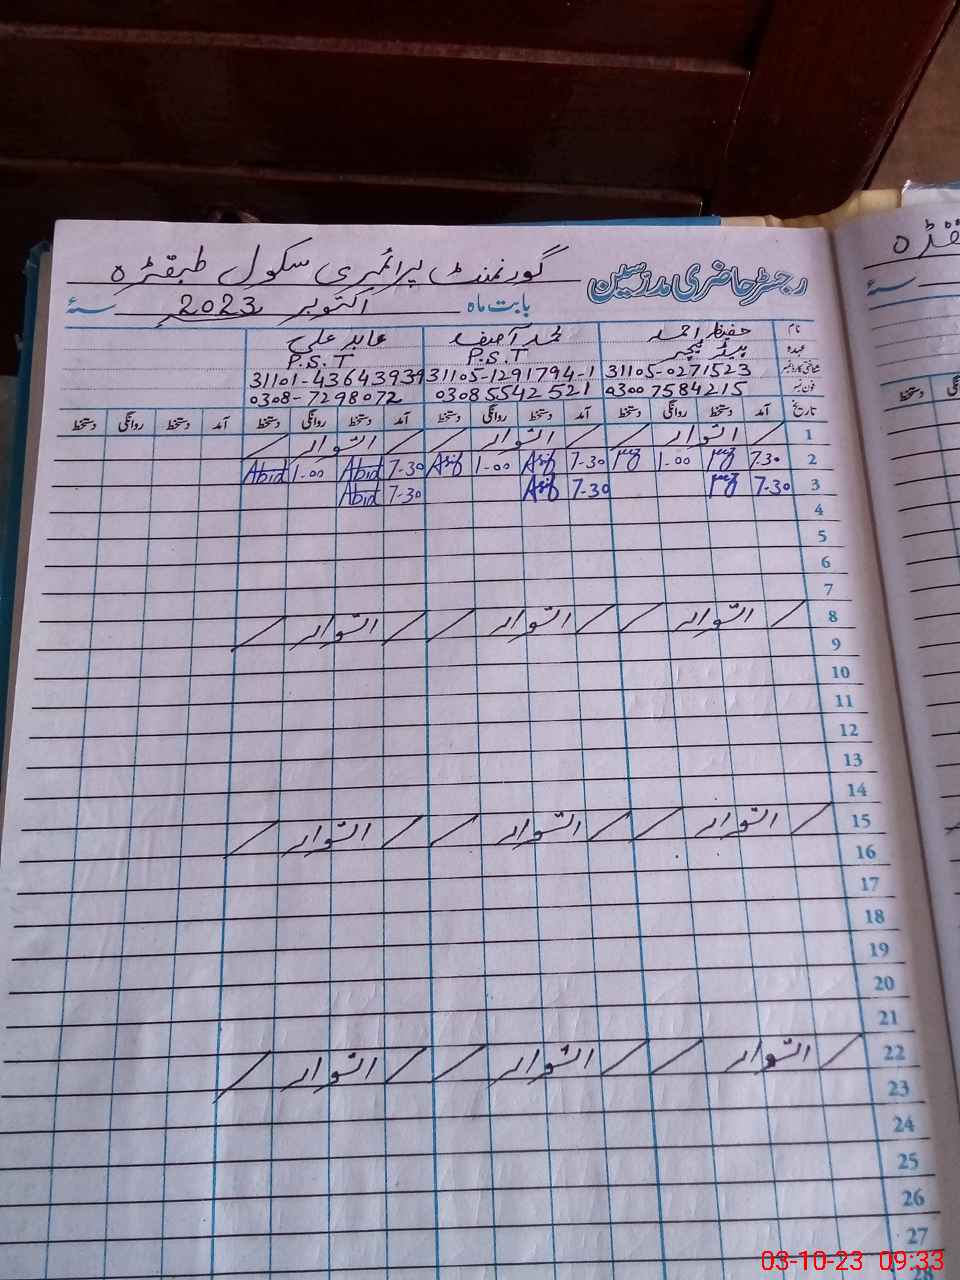 رجسٹر حاضری مدرسین گورنمنٹ پرائمری سکول طبقڑہ
بابت ماہ اکتوبر 2023 سنہ
نام حفیظ احمد محمد آصف عابد علی
عہدہ ہیڈ ٹیچر P.S.T P.S.T
شناختی کارڈ نمبر 31105-0271523 31105-1291794-1 31101-4364393
فون نمبر 03007584215 03085542521 0308-7298072
تاریخ آمد دستخط روانگی دستخط آمد دستخط روانگی دستخط آمد دستخط روانگی دستخط آمد دستخط روانگی دستخط
1 / اتوار / / اتوار / / اتوار /
2 7.30 1.00 7-30 Asif 1-00 Asif 7-30 Abid 1-00 Abid
3 7-30 7-30 Asif 7-30 Abid
4
5
6
7
8 / اتوار / / اتوار / / اتوار /
9
10
11
12
13
14
15 / اتوار / / اتوار / / اتوار /
16
17
18
19
20
21
22 / اتوار / / اتوار / / اتوار /
23
24
25
26
27
28
03-10-23 09:33